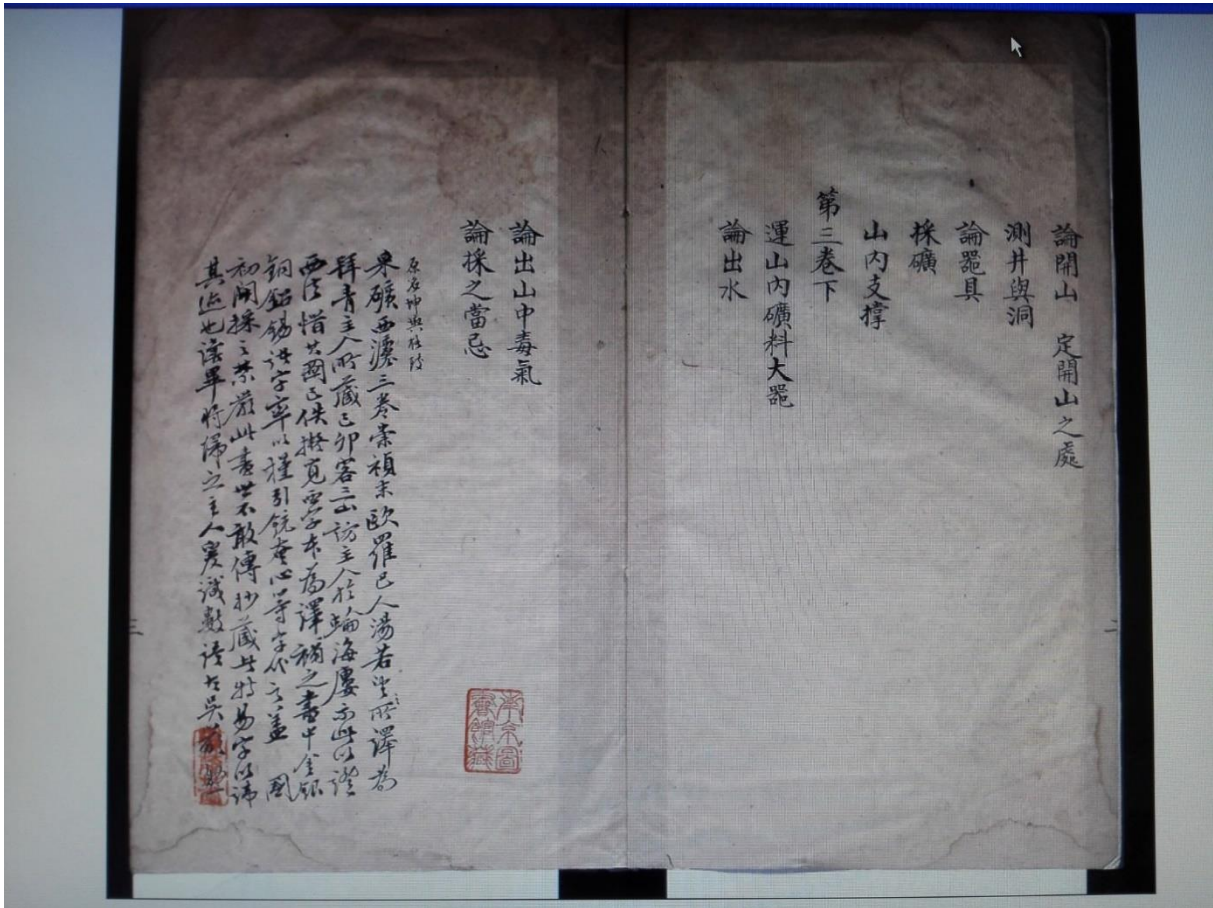 論開山 定開山之處
測井與洞
論器具
採礦
山內支撐
第三卷下
運山內礦料大器
論出水
論出山中毒氣
論採之當忌
原名坤輿格致
采礦西灋三卷崇禎末歐羅巴人湯若望所譯為
拜青主人所藏己卯客三山訪主人於蝙海廔示此以證
西法惜其圖已佚擬覓西字本為譯補之書中金銀
銅鉛錫諸字率以等字代之蓋 國
初開採之禁嚴此書世不敢傳抄藏者特易字以諱
其迹也讀畢將歸之主人爰識數語
南京圖書館藏
二
三